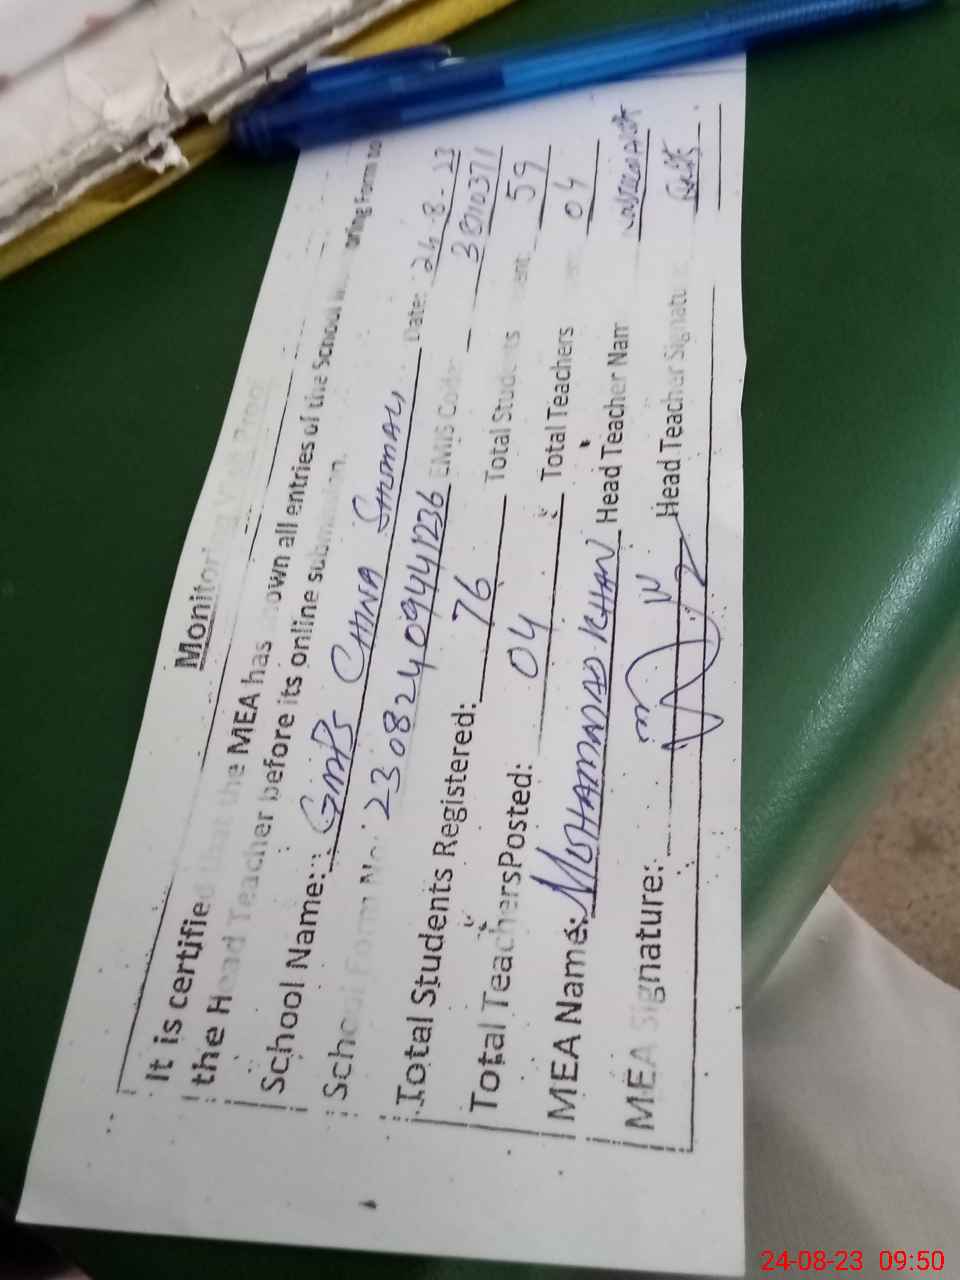 Monitoring Visit Proof
It is certified that the MEA has own all entries of the School oring Form to
the Head Teacher before its online submission.
School Name: GMPS CHINA SHUMALI Date: 24-8-23
School Form No: 23082409441236 EMIS Code: 38110371
Total Students Registered: 76 Total Students ent: 59
Total Teachers Posted: 04 Total Teachers 04
MEA Name: MUHAMMAD KHAN Head Teacher Nam
MEA Signature: Head Teacher Signatu
24-08-23 09:50